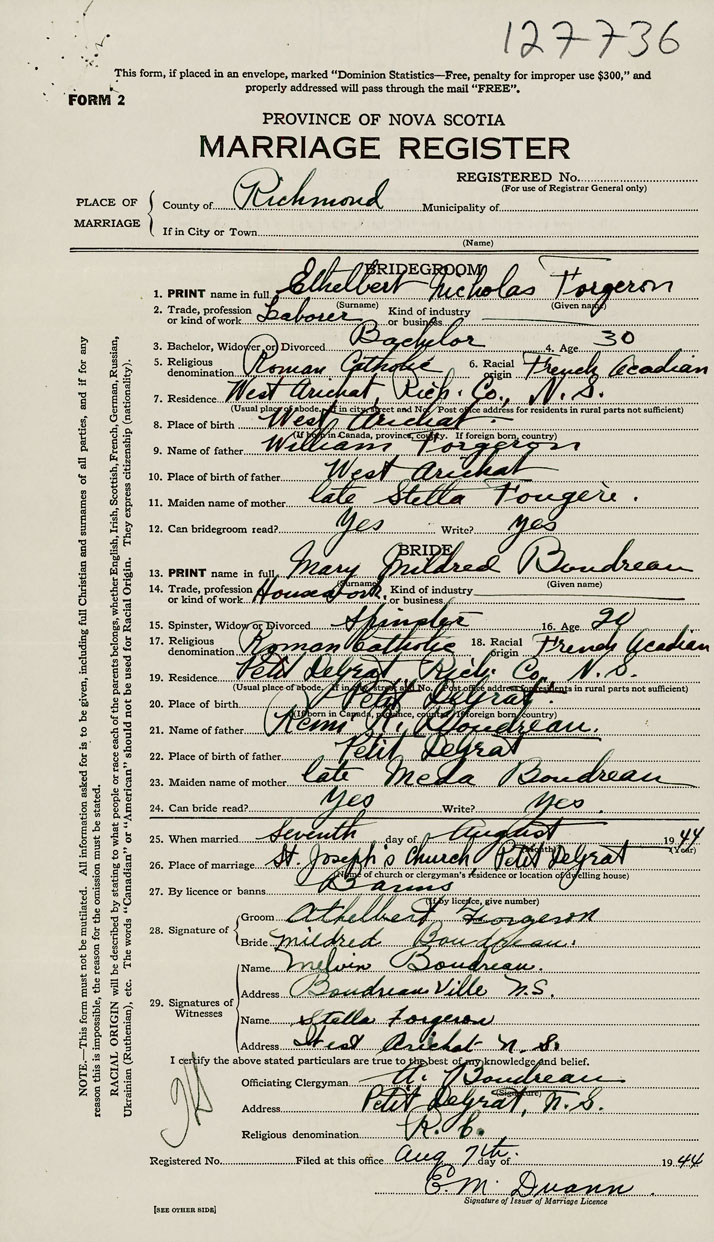 127736
This form, if placed in an envelope, marked "Dominion Statistics—Free, penalty for improper use $300," and
properly addressed will pass through the mail "FREE".
FORM 2
PROVINCE OF NOVA SCOTIA
MARRIAGE REGISTER
REGISTERED No.
(For use of Registrar General only)
PLACE OF MARRIAGE
County of Richmond Municipality of
If in City or Town
(Name)
BRIDEGROOM
1. PRINT name in full Ethelbert Nicholas Forgeron
(Surname) (Given name)
2. Trade, profession or kind of work Laborer Kind of industry or business
3. Bachelor, Widower or Divorced Bachelor 4. Age 30
5. Religious denomination Roman Catholic 6. Racial origin French Acadian
7. Residence West Arichat, Rich. Co., N.S.
(Usual place of abode. If in city street and No. Post office address for residents in rural parts not sufficient)
8. Place of birth West Arichat
(If born in Canada, province, county. If foreign born, country)
9. Name of father William Forgeron
10. Place of birth of father West Arichat
11. Maiden name of mother late Stella Fougère.
12. Can bridegroom read? Yes Write? yes
BRIDE
13. PRINT name in full Mary Mildred Boudreau
(Surname) (Given name)
14. Trade, profession or kind of work Housework. Kind of industry or business
15. Spinster, Widow or Divorced Spinster 16. Age
17. Religious denomination Roman Catholic 18. Racial origin French Acadian
19. Residence Petit DeGrat Rich. Co., N.S.
(Usual place of abode. If in city street and No. Post office address for residents in rural parts not sufficient)
20. Place of birth Petit DeGrat.
(If born in Canada, province, county. If foreign born, country)
21. Name of father Boudreau.
22. Place of birth of father Petit DeGrat
23. Maiden name of mother late Meda Boudreau
24. Can bride read? Yes Write? Yes.
25. When married Seventh day of August 1944
(Month) (Year)
26. Place of marriage St. Joseph's Church, Petit DeGrat
(Name of church or clergyman's residence or location of dwelling house)
27. By licence or banns Banns
(If by licence, give number)
28. Signature of
Groom Athelbert Forgeron
Bride Mildred Boudreau.
29. Signatures of Witnesses
Name Melvin Boudreau.
Address Boudreauville N.S.
Name Stella Forgeron
Address West Arichat N.S.
I certify the above stated particulars are true to the best of my knowledge and belief.
Officiating Clergyman A. Boudreau
(Signature)
Address Petit DeGrat, N.S.
Religious denomination R.C.
Registered No. Filed at this office Aug 7th. day of 1944
E.M.
Signature of Issuer of Marriage Licence
[SEE OTHER SIDE]
NOTE.—This form must not be mutilated. All information asked for is to be given, including full Christian and surnames of all parties, and if for any
reason this is impossible, the reason for the omission must be stated.
RACIAL ORIGIN will be described by stating to what people or race each of the parents belongs, whether English, Irish, Scottish, French, German, Russian,
Ukrainian (Ruthenian), etc. The words "Canadian" or "American" should not be used for Racial Origin. They express citizenship (nationality).